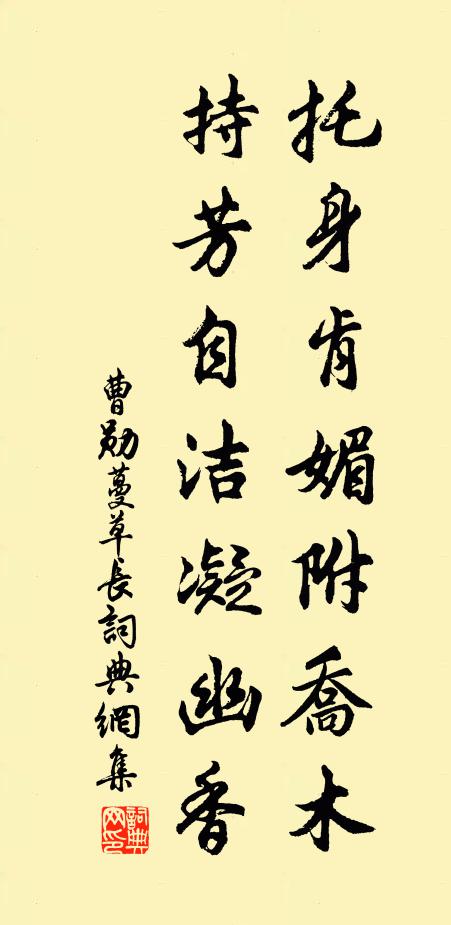 托身肯媚附喬木
持芳自洁凝幽香
曹勛蔓草長詞典網集
詞典网印